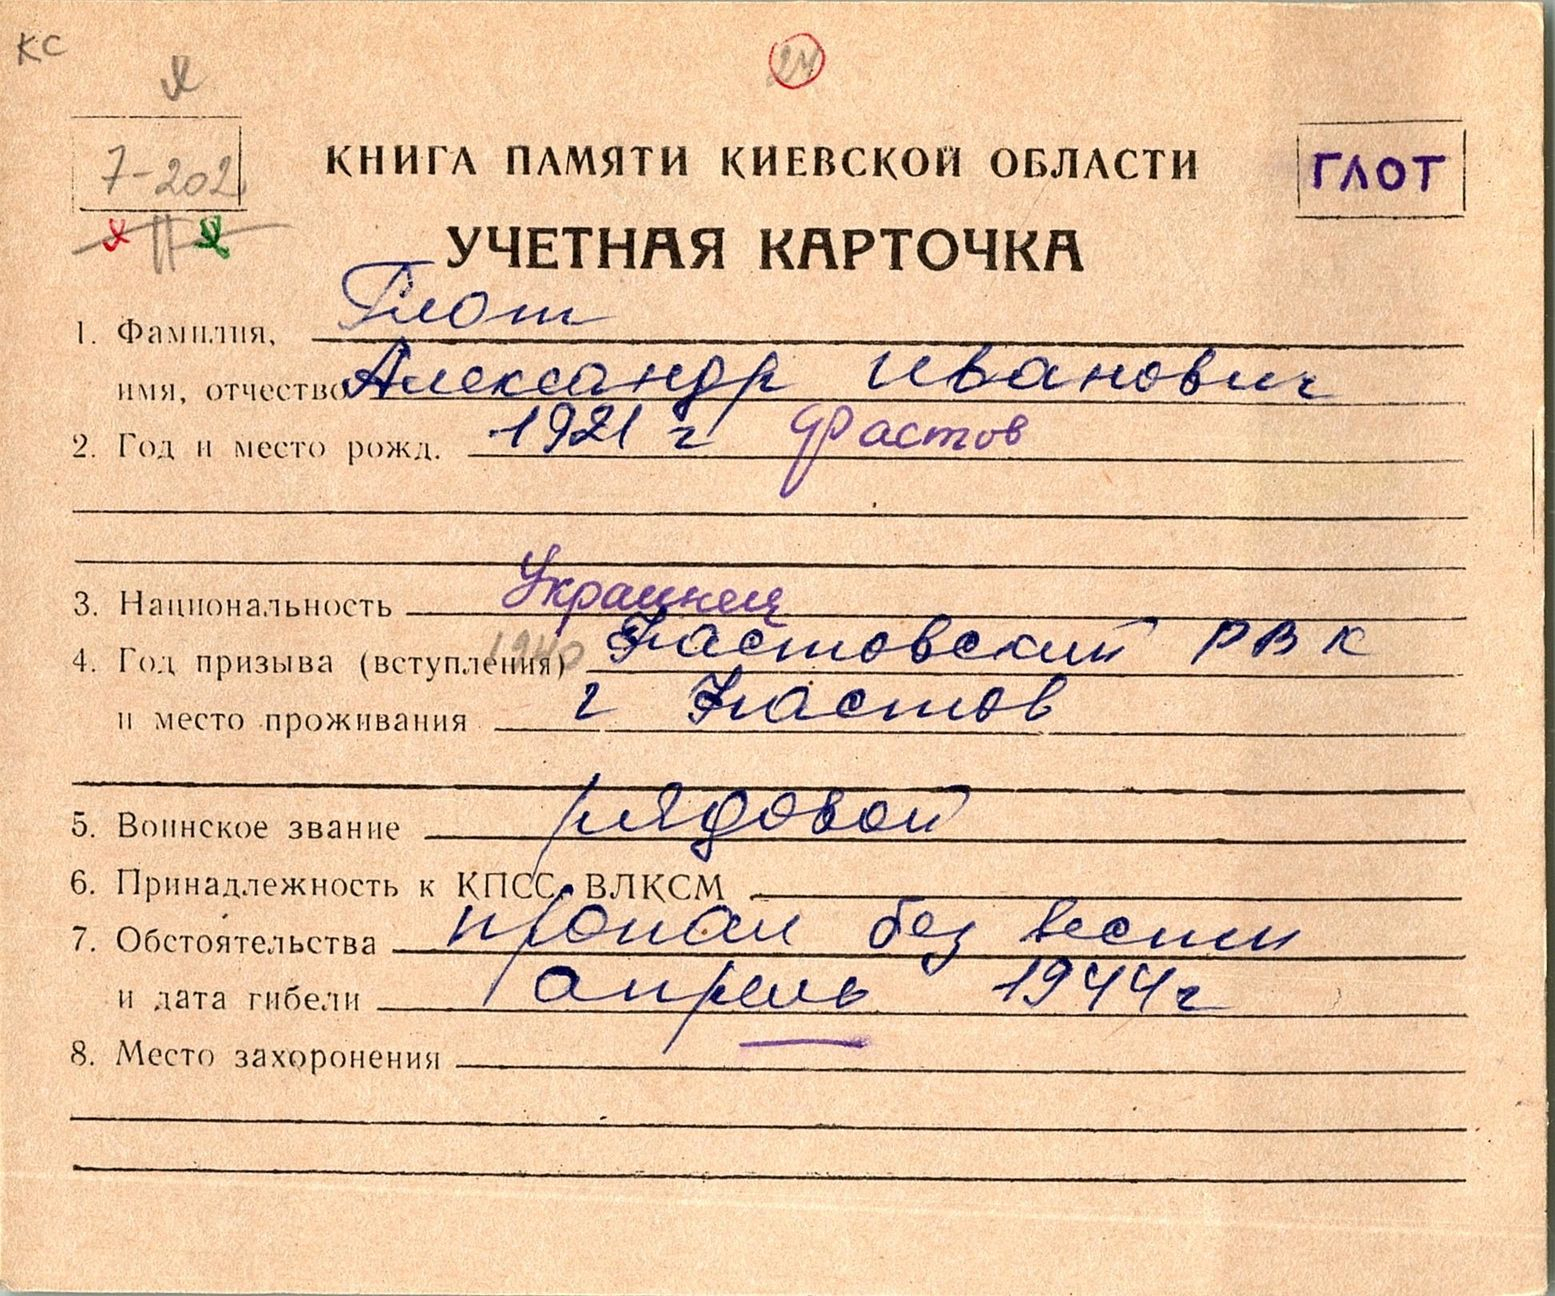 КС
24
7-202
КНИГА ПАМЯТИ КИЕВСКОЙ ОБЛАСТИ
ГЛОТ
УЧЕТНАЯ КАРТОЧКА
1. Фамилия, Глот
имя, отчество Александр Иванович
2. Год и место рожд. 1921 г Фастов
3. Национальность Украинец
4. Год призыва (вступления) 1940 Фастовский РВК
и место проживания г Фастов
5. Воинское звание рядовой
6. Принадлежность к КПСС, ВЛКСМ
7. Обстоятельства пропал без вести
и дата гибели апрель 1944г
8. Место захоронения